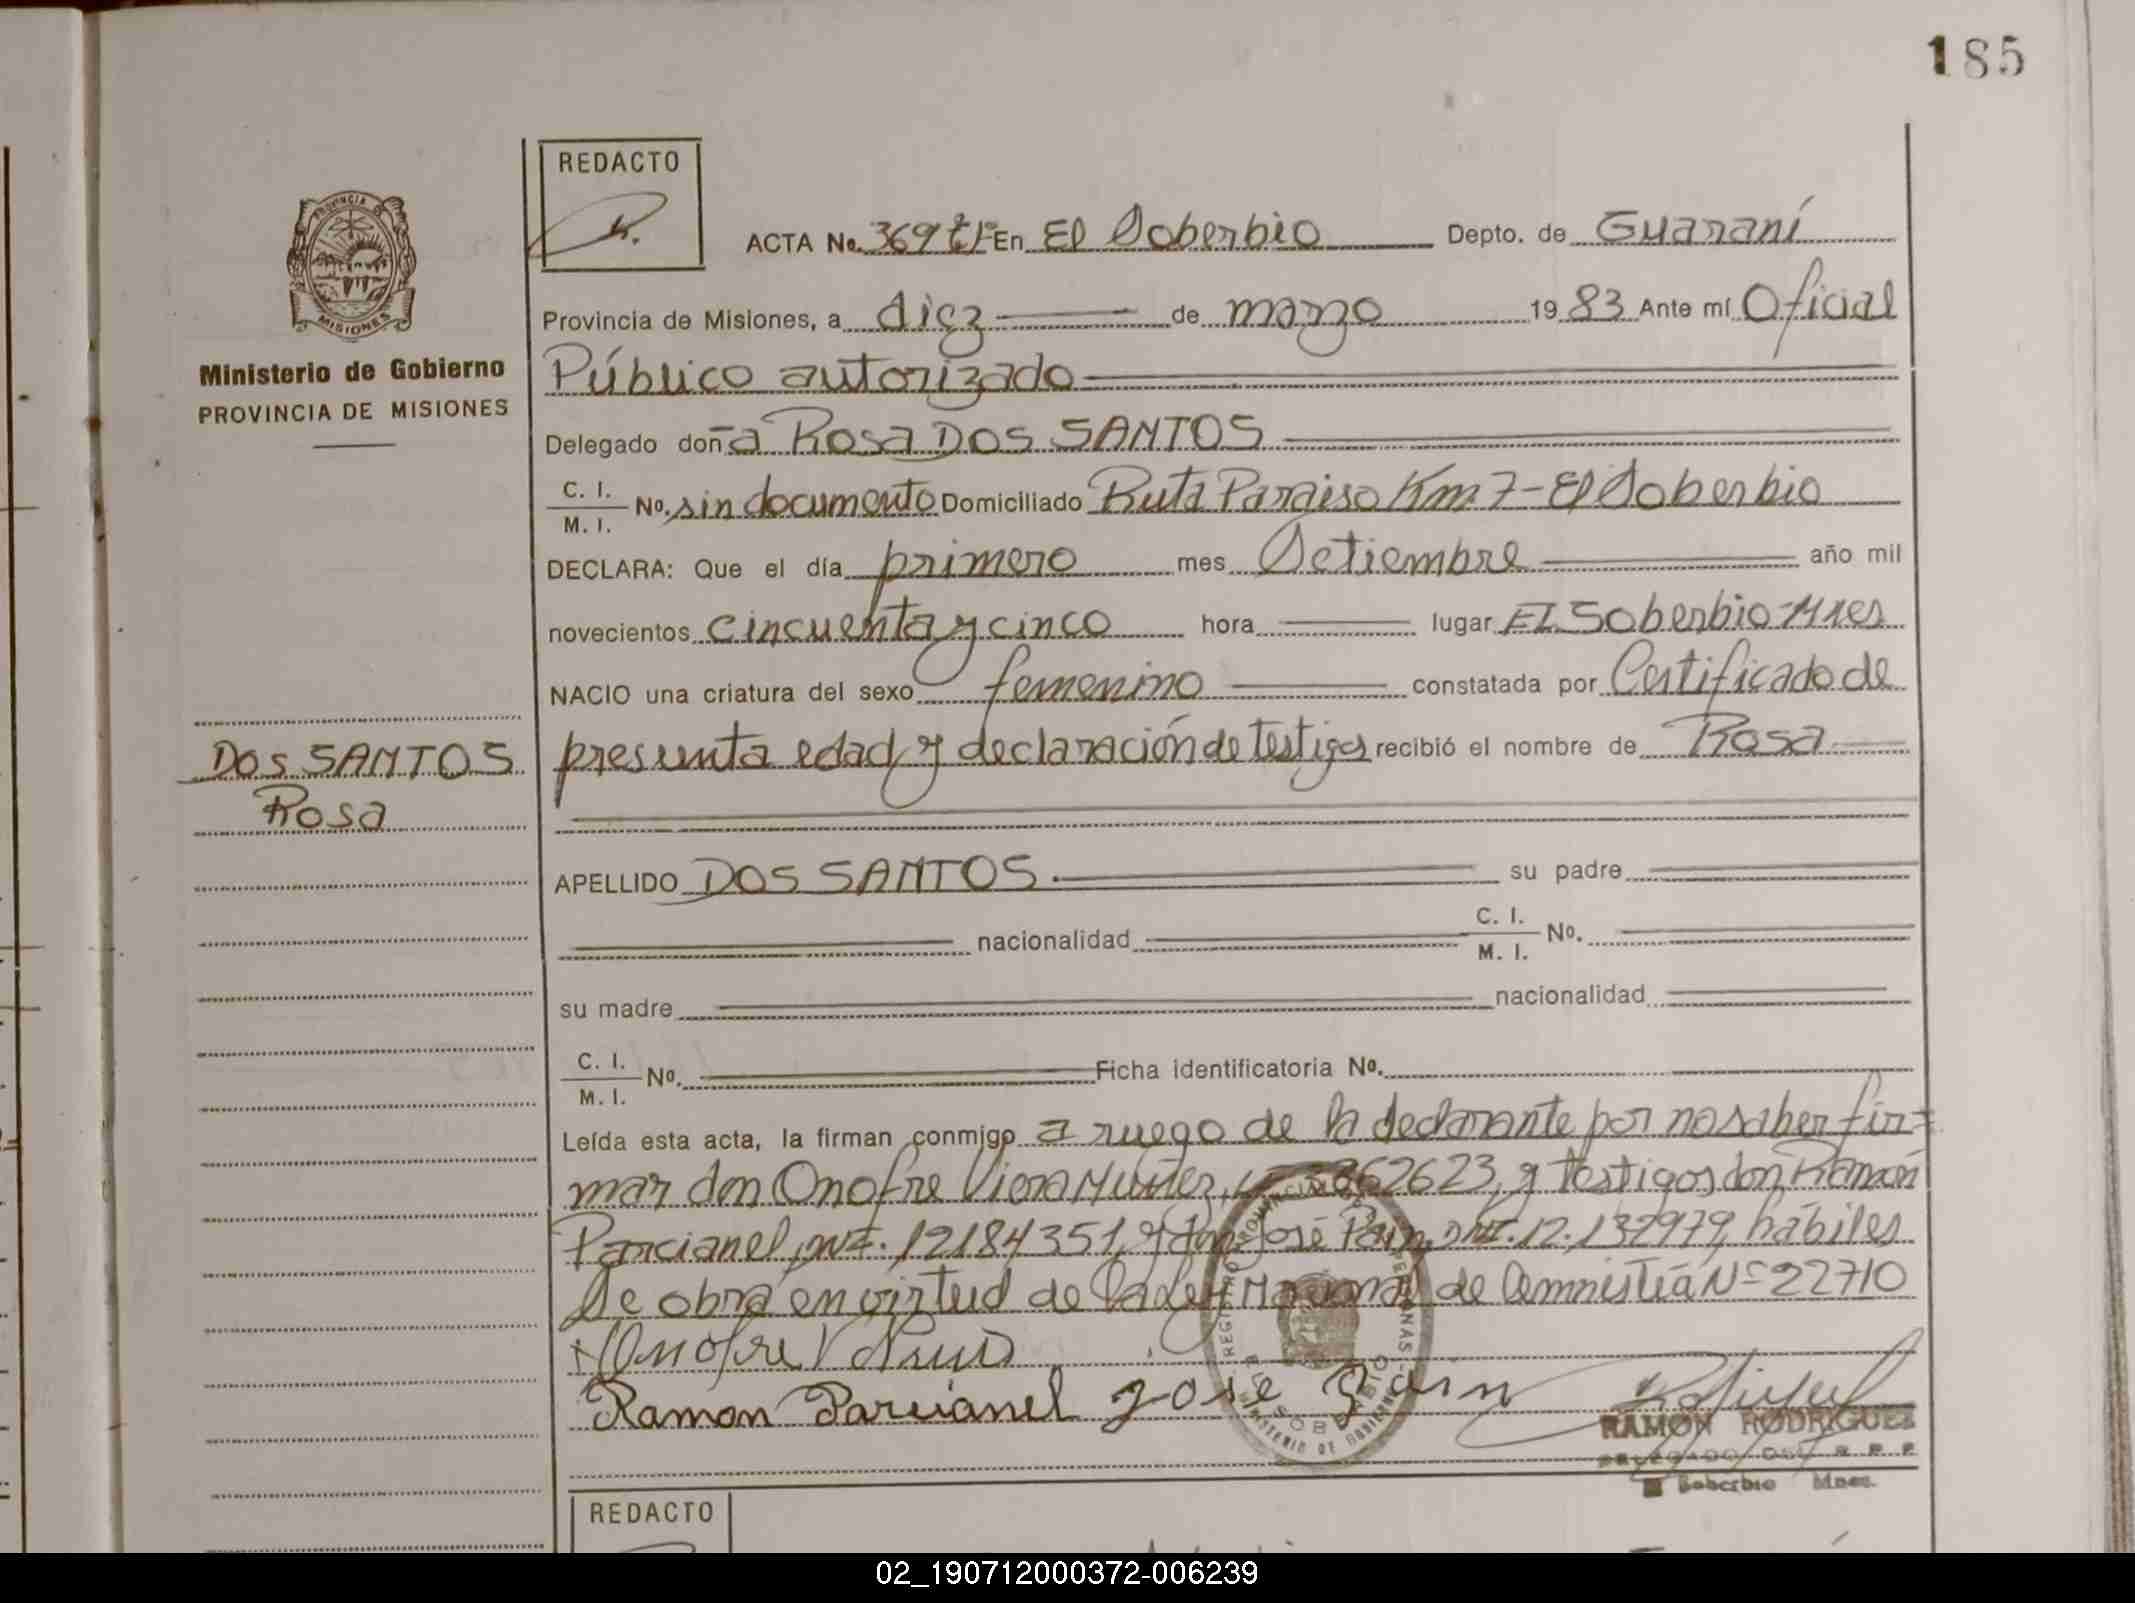 185
REDACTO
ACTA No. 369 tI° En El Soberbio Depto. de Guaraní
Provincia de Misiones, a diez de marzo 1983 Ante mí Oficial
Público autorizado
Ministerio de Gobierno
PROVINCIA DE MISIONES
Delegado doña Rosa DOS SANTOS
C. I.
M. I.
No. sin documento Domiciliado Ruta Paraiso Km 7-El Soberbio
DECLARA: Que el día primero mes Setiembre año mil
novecientos cincuenta y cinco hora lugar El Soberbio-Mnes
NACIO una criatura del sexo femenino constatada por Certificado de
presunta edad y declaración de testigos recibió el nombre de Rosa
DOS SANTOS
Rosa
APELLIDO DOS SANTOS. su padre
nacionalidad C. I. M. I. No.
su madre nacionalidad
C. I. M. I. No. Ficha identificatoria No.
Leída esta acta, la firman conmigo a ruego de la declarante por no saber fir=
mar don Onofre Viera Nuñez, 862623, y testigos don Ramón
Parcianel, DNI. 12184351, y don José Pain, DNI. 12.132979, hábiles
Se obra en virtud de la Ley Nacional de Amnistía N° 22710
Onofre V
Ramon Parcianel José Pain
REGISTRO PROVINCIAL PERSONAS
EL SOBERBIO
MINISTERIO DE GOBIERNO
MISIONES
RAMON RODRIGUEZ
El Soberbio Mnes.
REDACTO
02_190712000372-006239